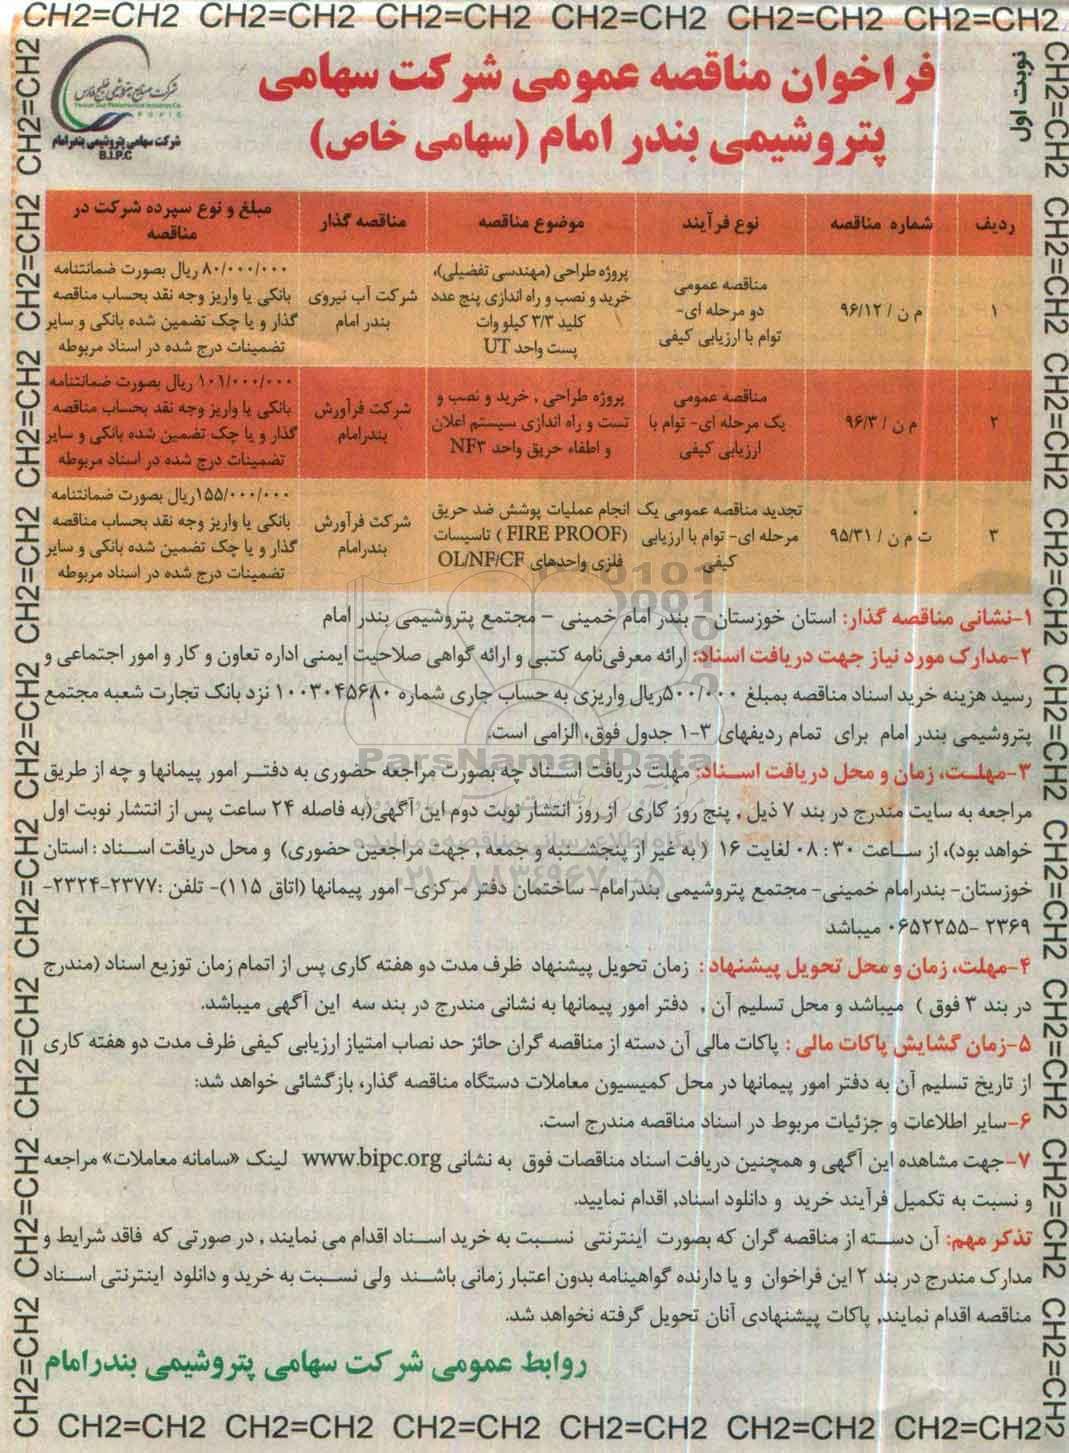 CH2=CH2 CH2=CH2 CH2=CH2 CH2=CH2 CH2=CH2 CH2=CH2
نوبت اول
شرکت صنایع پتروشیمی خلیج فارس
شرکت سهامی پتروشیمی بندرامام
B.I.P.C
فراخوان مناقصه عمومی شرکت سهامی
پتروشیمی بندر امام (سهامی خاص)
ردیف | شماره مناقصه | نوع فرآیند | موضوع مناقصه | مناقصه گذار | مبلغ و نوع سپرده شرکت در مناقصه
۱ | م ن / ۹۶/۱۲ | مناقصه عمومی دو مرحله ای- توام با ارزیابی کیفی | پروژه طراحی (مهندسی تفضیلی)، خرید و نصب و راه اندازی پنج عدد کلید ۳/۳ کیلو وات پست واحد UT | شرکت آب نیروی بندر امام | ۸۰/۰۰۰/۰۰۰ ریال بصورت ضمانتنامه بانکی یا واریز وجه نقد بحساب مناقصه گذار و یا چک تضمین شده بانکی و سایر تضمینات درج شده در اسناد مربوطه
۲ | م ن / ۹۶/۳ | مناقصه عمومی یک مرحله ای- توام با ارزیابی کیفی | پروژه طراحی , خرید و نصب و تست و راه اندازی سیستم اعلان و اطفاء حریق واحد NF۳ | شرکت فرآورش بندرامام | ۱۰۱/۰۰۰/۰۰۰ ریال بصورت ضمانتنامه بانکی یا واریز وجه نقد بحساب مناقصه گذار و یا چک تضمین شده بانکی و سایر تضمینات درج شده در اسناد مربوطه
۳ | ت م ن / ۹۵/۳۱ | تجدید مناقصه عمومی یک مرحله ای- توام با ارزیابی کیفی | انجام عملیات پوشش ضد حریق (FIRE PROOF) تاسیسات فلزی واحدهای OL/NF/CF | شرکت فرآورش بندرامام | ۱۵۵/۰۰۰/۰۰۰ریال بصورت ضمانتنامه بانکی یا واریز وجه نقد بحساب مناقصه گذار و یا چک تضمین شده بانکی و سایر تضمینات درج شده در اسناد مربوطه
۱-نشانی مناقصه گذار: استان خوزستان – بندر امام خمینی – مجتمع پتروشیمی بندر امام
۲-مدارک مورد نیاز جهت دریافت اسناد: ارائه معرفی‌نامه کتبی و ارائه گواهی صلاحیت ایمنی اداره تعاون و کار و امور اجتماعی و
رسید هزینه خرید اسناد مناقصه بمبلغ ۵۰۰/۰۰۰ریال واریزی به حساب جاری شماره ۱۰۰۳۰۴۵۶۸۰ نزد بانک تجارت شعبه مجتمع
پتروشیمی بندر امام برای تمام ردیفهای ۳-۱ جدول فوق، الزامی است.
ParsNamadData
۳-مهلت، زمان و محل دریافت اسناد: مهلت دریافت اسناد چه بصورت مراجعه حضوری به دفتر امور پیمانها و چه از طریق
مراجعه به سایت مندرج در بند ۷ ذیل , پنج روز کاری از روز انتشار نوبت دوم این آگهی(به فاصله ۲۴ ساعت پس از انتشار نوبت اول
خواهد بود)، از ساعت ۳۰ : ۰۸ لغایت ۱۶ ( به غیر از پنجشنبه و جمعه , جهت مراجعین حضوری) و محل دریافت اسناد : استان
خوزستان- بندرامام خمینی- مجتمع پتروشیمی بندرامام- ساختمان دفتر مرکزی- امور پیمانها (اتاق ۱۱۵)- تلفن :۲۳۷۷-۲۳۲۴-
۲۳۶۹ -۰۶۵۲۲۵۵ میباشد
۴-مهلت، زمان و محل تحویل پیشنهاد : زمان تحویل پیشنهاد ظرف مدت دو هفته کاری پس از اتمام زمان توزیع اسناد (مندرج
در بند ۳ فوق ) میباشد و محل تسلیم آن , دفتر امور پیمانها به نشانی مندرج در بند سه این آگهی میباشد.
۵-زمان گشایش پاکات مالی : پاکات مالی آن دسته از مناقصه گران حائز حد نصاب امتیاز ارزیابی کیفی ظرف مدت دو هفته کاری
از تاریخ تسلیم آن به دفتر امور پیمانها در محل کمیسیون معاملات دستگاه مناقصه گذار، بازگشائی خواهد شد:
۶-سایر اطلاعات و جزئیات مربوط در اسناد مناقصه مندرج است.
۷-جهت مشاهده این آگهی و همچنین دریافت اسناد مناقصات فوق به نشانی www.bipc.org لینک «سامانه معاملات» مراجعه
و نسبت به تکمیل فرآیند خرید و دانلود اسناد, اقدام نمایید.
تذکر مهم: آن دسته از مناقصه گران که بصورت اینترنتی نسبت به خرید اسناد اقدام می نمایند , در صورتی که فاقد شرایط و
مدارک مندرج در بند ۲ این فراخوان و یا دارنده گواهینامه بدون اعتبار زمانی باشند ولی نسبت به خرید و دانلود اینترنتی اسناد
مناقصه اقدام نمایند, پاکات پیشنهادی آنان تحویل گرفته نخواهد شد.
روابط عمومی شرکت سهامی پتروشیمی بندرامام
CH2=CH2 CH2=CH2 CH2=CH2 CH2=CH2 CH2=CH2 CH2=CH2